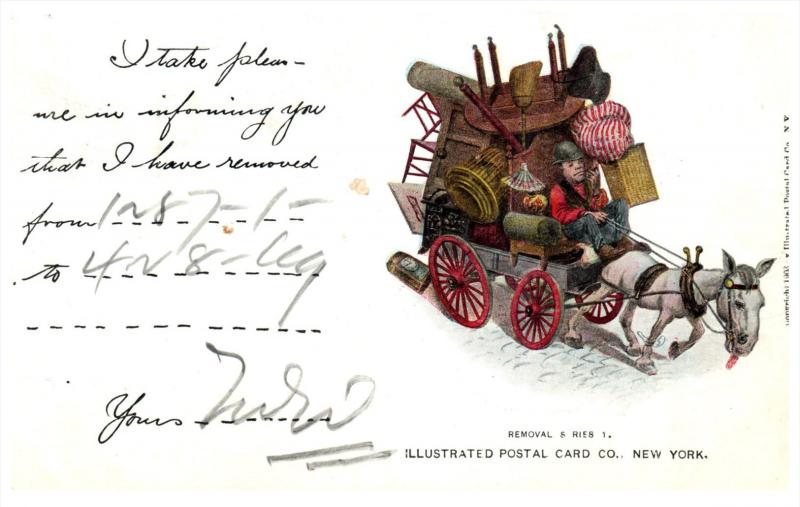 I take pleas-
ure in informing you
that I have removed
from 1287-1-
to 428-
Yours
REMOVAL S RIES 1.
ILLUSTRATED POSTAL CARD CO., NEW YORK.
Copyright 1903 Illustrated Postal Card Co. N.Y.